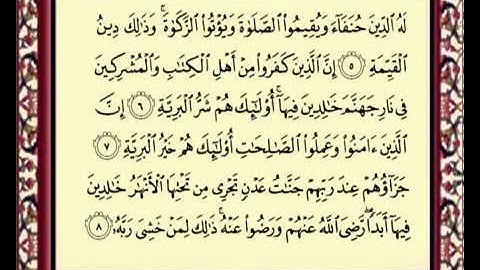 لَهُ ٱلدِّينَ حُنَفَآءَ وَيُقِيمُوا۟ ٱلصَّلَوٰةَ وَيُؤْتُوا۟ ٱلزَّكَوٰةَ ۚ وَذَٰلِكَ دِينُ
ٱلْقَيِّمَةِ ۝٥ إِنَّ ٱلَّذِينَ كَفَرُوا۟ مِنْ أَهْلِ ٱلْكِتَٰبِ وَٱلْمُشْرِكِينَ
فِى نَارِ جَهَنَّمَ خَٰلِدِينَ فِيهَآ ۚ أُو۟لَٰٓئِكَ هُمْ شَرُّ ٱلْبَرِيَّةِ ۝٦ إِنَّ
ٱلَّذِينَ ءَامَنُوا۟ وَعَمِلُوا۟ ٱلصَّٰلِحَٰتِ أُو۟لَٰٓئِكَ هُمْ خَيْرُ ٱلْبَرِيَّةِ ۝٧
جَزَآؤُهُمْ عِندَ رَبِّهِمْ جَنَّٰتُ عَدْنٍ تَجْرِى مِن تَحْتِهَا ٱلْأَنْهَٰرُ خَٰلِدِينَ
فِيهَآ أَبَدًا ۖ رَّضِىَ ٱللَّهُ عَنْهُمْ وَرَضُوا۟ عَنْهُ ۚ ذَٰلِكَ لِمَنْ خَشِىَ رَبَّهُۥ ۝٨